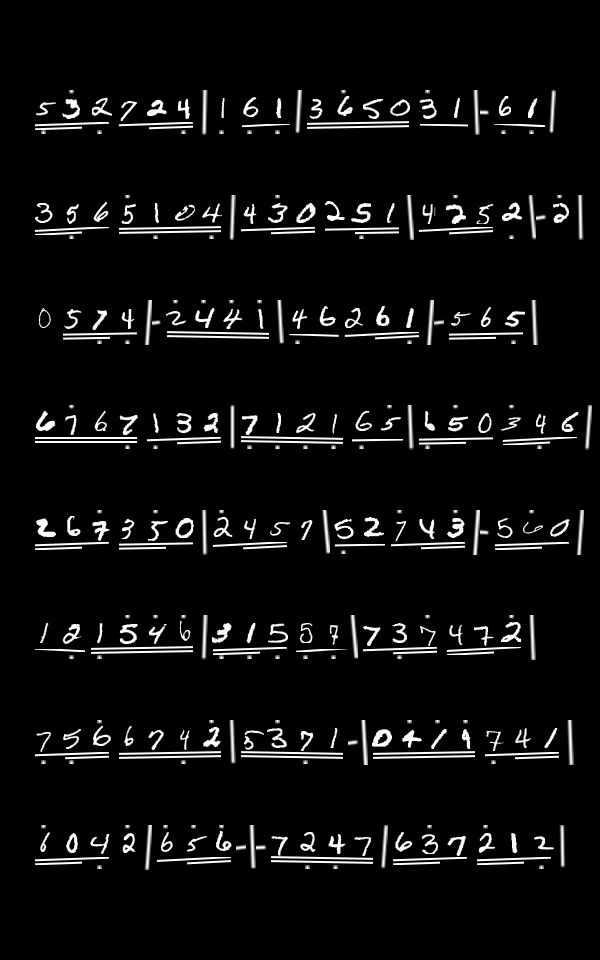 5 3 2 7 2 4 | 1 6 1 | 3 6 5 0 3 1 | - 6 1 |
3 5 6 5 1 0 4 | 4 3 0 2 5 1 | 4 2 5 2 | - 2 |
0 5 7 4 | - 2 4 4 1 | 4 6 2 6 1 | - 5 6 5 |
6 7 6 7 1 3 2 | 7 1 2 1 6 5 | 6 5 0 3 4 6 |
2 6 7 3 5 0 | 2 4 5 7 | 5 2 7 4 3 | - 5 6 0 |
1 2 1 5 4 6 | 3 1 5 5 7 | 7 3 7 4 7 2 |
7 5 6 6 7 4 2 | 5 3 7 1 - | 0 4 1 9 7 4 1 |
6 0 4 2 | 6 5 6 - | - 7 2 4 7 | 6 3 7 2 1 2 |